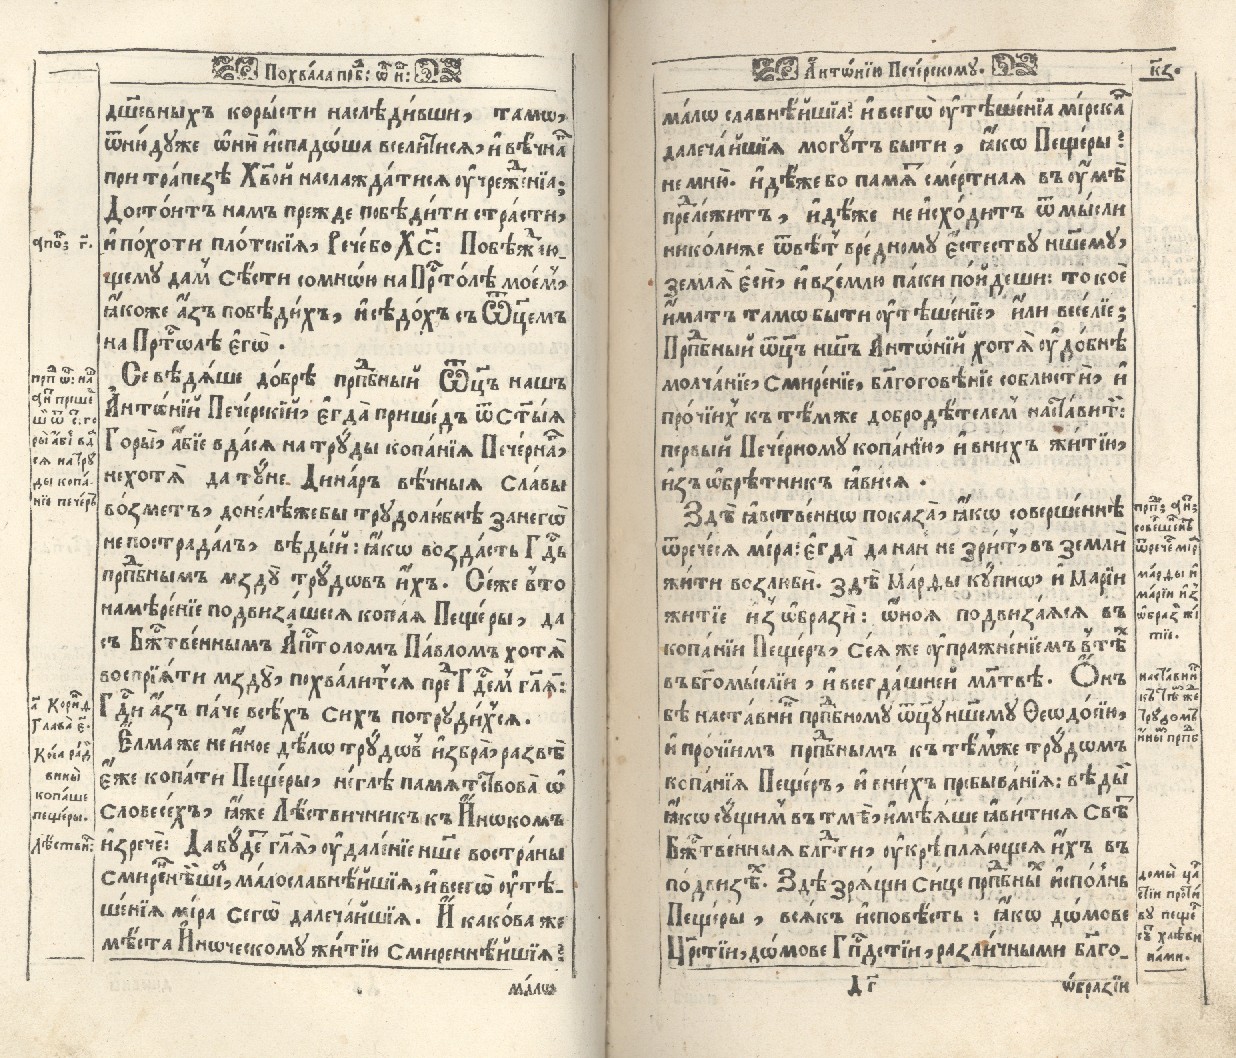 Похва́ла прп҃б: ѿ н҃:
дш҃евныхъ коры́сти наслѣди́вши, тамѡ,
ѿню́дуже ѻ҆нѝ и҆спадо́ша вселѝтися, и҆ вѣ́чнаѧ
при тра́пезѣ Хв҃ой наслажда́тися оу҆чреже́нїа;
Досто́итъ намъ прежде побѣди́ти стра́сти,
и҆ по́хоти пло́тскїѧ, Рече́ бо Хс҃: Побѣжда́ю-
щему дамъ Сѣ́сти со мно́ю на Прⷭ҇то́лѣ мое́мъ,
ꙗ҆́коже а҆́зъ побѣди́хъ, и҆ сѣдо́хъ съ Ѿц҃емъ
на Прⷭ҇то́лѣ є҆гѡ̀.
Се вѣ́дяше до́брѣ прпⷣбный Ѿц҃ъ нашъ
А҆нтѡ́нїй Пече́рскїй, є҆гда̀ прише́дъ ѿ Ст҃ы́ѧ
Горы̀, а҆́бїе вда́ся на тру́ды копа́нїѧ Пече́рнаѧ,
не хотѧ̀ да ту́не Дина́ръ вѣ́чныѧ Сла́вы
во́зметъ, до не́лѣже бы трудолю́бнѣ за негѡ̀
не пострада́лъ, вѣ́дый: ꙗ҆́кѡ возда́сть Гд҇ь
прпⷣбнымъ мзду̀ трудѡ́въ и҆́хъ. Се́ же въ то
намѣ́ренїе подвиза́шеся копа́ѧ Пеще́ры, да
съ Бжⷭ҇тве́ннымъ А҆пⷭ҇толомъ Па́вломъ хотѧ̀
воспрїѧ́ти мзду̀, похва́лится пред̾ Гдⷭ҇емъ гл҃ѧ:
Гдⷭ҇и а҆́зъ па́че всѣ́хъ си́хъ потруди́хся.
Е҆лма́ же не и҆́ное дѣ́ло трудѡ́въ и҆збра̀, развѣ̀
є҆́же копа́ти Пеще́ры, не́глѣ памятствова̀ ѡ҆
Словесѣ́хъ, ꙗ҆́же Лѣ́ствичникъ къ И҆́нокомъ
и҆зречѐ: Да бу́детъ гл҃ѧ, оу҆дале́нїе нш҃е во страны̀
Смире́ннѣйшїѧ, ма́лославнѣйшїѧ, и҆ всегѡ̀ оу҆тѣ-
ше́нїѧ мі́ра сегѡ̀ далеча́йшїѧ. И҆ какова́ же
мѣ́ста И҆́ноческому житїю̀ Смире́ннѣйшїѧ?
ма́лѡ
є҆по́з; г҃.
прп ѿ: на
є҆н прише
ѿ ст: го
ры а҆бїе вда
ся на тру
ды копа́-
нїе пече́ръ
а҃ Корі́нѳ
Глава є҃.
Коеѧ рад
вины̀
копа́ше
пеще́ры.
Лѣ́ствич:
А҆нтѡ́нїю Пече́рскому.
к҃з.
ма́лѡ славнѣ́йшїѧ? и҆ всегѡ̀ оу҆тѣше́нїѧ мі́рскаѧ
далеча́йшїѧ могу́тъ бы́ти, ꙗ҆́кѡ Пеще́ры?
не мню̀. и҆дѣ́же бо па́мять сме́ртнаѧ въ оу҆мѣ̀
прⷣлежи́тъ, и҆дѣ́же не и҆схо́дитъ ѿ мы́сли
николи́же ѿвѣ́тъ вре́дному є҆стеству̀ нш҃ему,
землѧ̀ є҆сѝ, и҆ въ зе́млю па́ки по́йдеши: то ко́е
и҆́мать та́мѡ бы́ти оу҆тѣше́нїе, и҆лѝ весе́лїе;
Прпⷣбный ѿц҃ъ нш҃ъ А҆нтѡ́нїй хотѧ̀ оу҆до́бнѣ
молча́нїе, Смире́нїе, блг҃оговѣ́нїе соблюстѝ, и҆
про́чїихъ къ тѣ́мже добродѣ́телемъ наста́вить:
первый Пече́рному копа́нїю, и҆ въ ни́хъ житїю̀,
и҆з̾ѡбрѣ́тникъ ꙗ҆ви́ся.
Здѣ̀ ꙗ҆́вственнѡ показа̀, ꙗ҆́кѡ соверше́ннѣ
ѿрече́ся мі́ра: є҆гда̀ да на́нь не зри́тъ, въ землѝ
жи́ти возлюбѝ. здѣ̀ Ма́рды ку́пнѡ, и҆ Марі́и
житїѐ и҆з̾ѡбразѝ: ѻ҆́ноѧ подвиза́ѧся въ
копа́нїи Пеще́ръ, Сеѧ́ же оу҆пражне́нїемъ въ тѣ́х
въ бг҃омы́слїи, и҆ всегда́шней мл҃твѣ. Ѻ҆́нъ
бѣ̀ наста́вникъ прпⷣбному ѿц҃у нш҃ему Ѳеодо́сїю,
и҆ про́чїимъ прпⷣбнымъ къ тѣ́мже трудо́мъ
копа́нїѧ Пеще́ръ, и҆ въ ни́хъ пребыва́нїѧ: вѣ́ды
ꙗ҆́кѡ су́щимъ въ тмѣ̀, и҆мѣ́ѧше ꙗ҆ви́тися Свѣ́тъ
Бжⷭ҇твенныѧ блг҇ти, оу҆крѣплѧ́ющеѧ и҆́хъ въ
по́двизѣхъ. Здѣ̀ зрѧ́щи Си́це прпⷣбныхъ и҆спо́лнь
Пеще́ры, всѧ́къ и҆сповѣ́сть: ꙗ҆́кѡ до́мове
Црⷭ҇тїи, до́мове Гпⷭ҇дстїи, разли́чными бл҃го-
Д г҃
ѡ҆бразїи
прпб; є҆н;
соверше́нъ
ѿрече́ мір
ма́рды и҆
марі́и и҆з̾
ѡ҆бразѝ жи
тїе.
наста́вни
къ тѣ́мже
трудо́мъ
и҆нымъ прпб
домы̀ ца́р
стїи проти́
ву пеще́
съ хлѣви
на́ми.